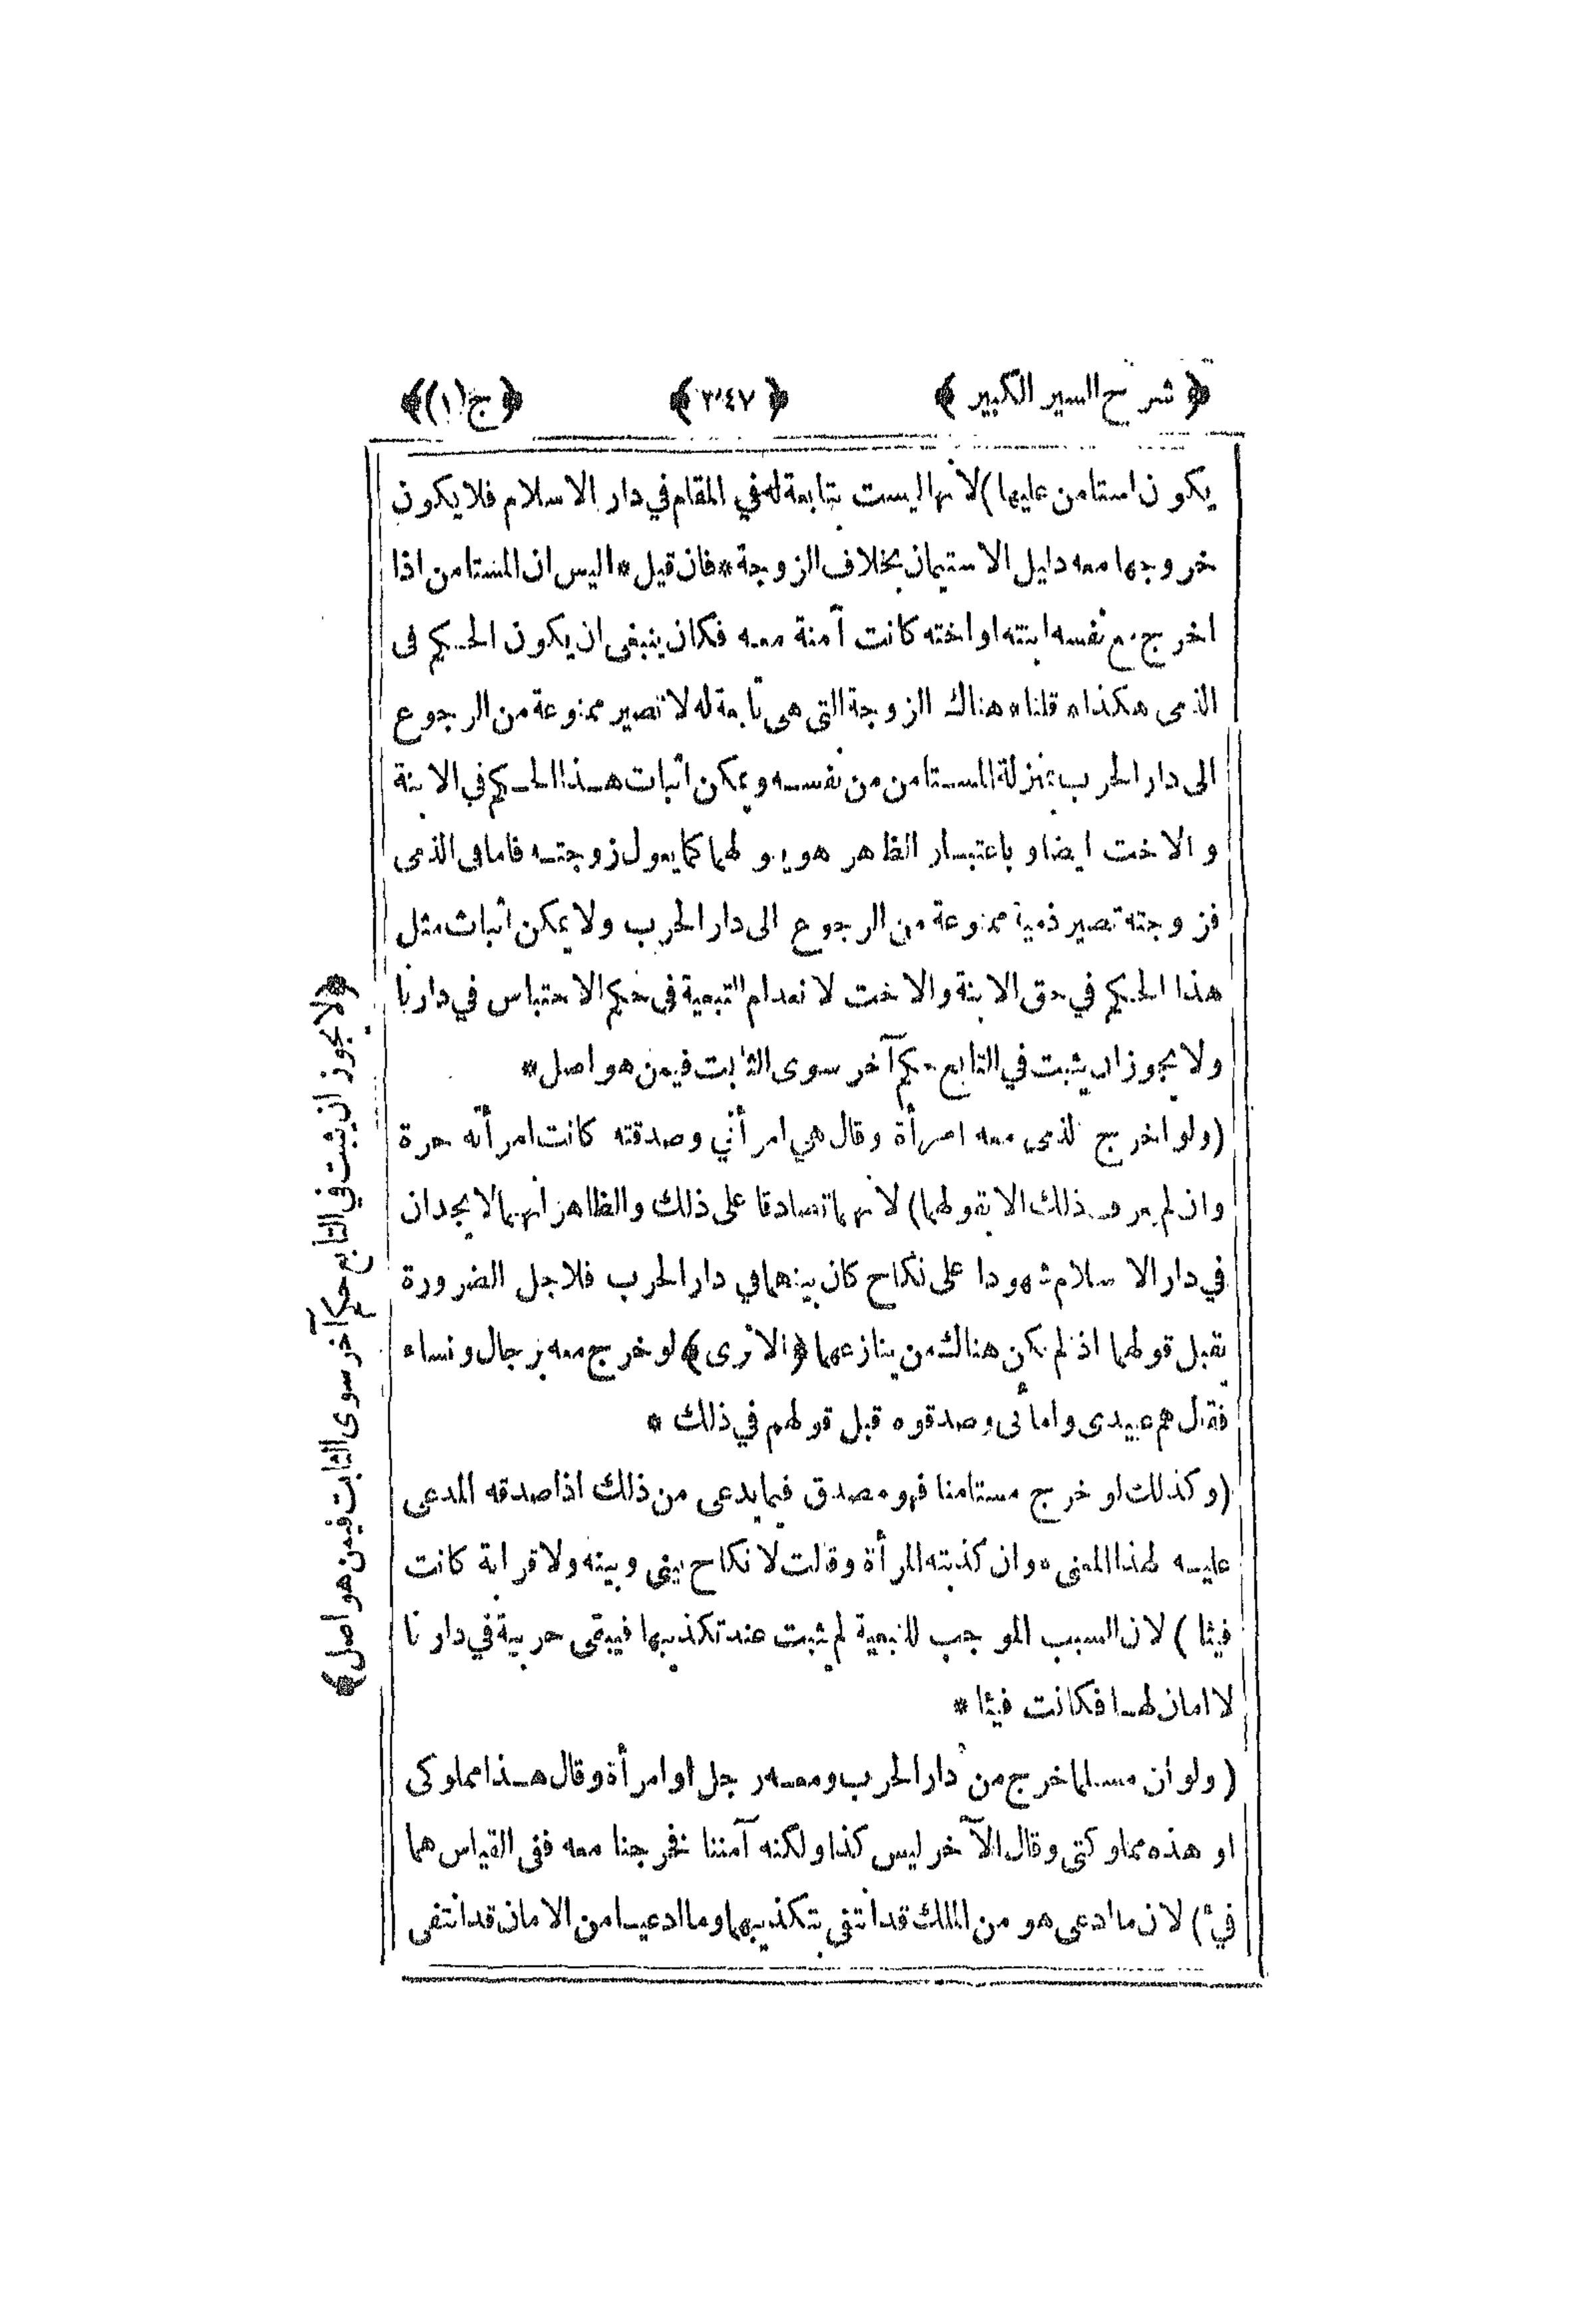 ﴿ شرح السير الكبير ﴾ ﴿ ٣٤٧ ﴾ ﴿ ج (١) ﴾
يكون استامن عليها) لانها ليست بتابعة له في المقام في دار الاسلام فلا يكون
خروجها معه دليل الاستيمان بخلاف الزوجة * فان قيل * اليس ان المستامن اذا
اخرج مع نفسه ابنته او اخته كانت آمنة معه فكان ينبغى ان يكون الحكم فى
الذمى هكذا * قلنا * هناك الزوجة التى هى تابعة له لا تصير ممنوعة من الرجوع
الى دار الحرب بمنزلة المستامن من نفسه ويمكن اثبات هذا الحكم في الابنة
والاخت ايضا وباعتبار الظاهر هو يعولهما كما يعول زوجته فاما فى الذمى
فزوجته تصير ذمية ممنوعة من الرجوع الى دار الحرب ولا يمكن اثبات مثل
هذا الحكم في حق الابنة والاخت لانعدام التبعية فى حكم الاحتباس في دارنا
ولا يجوز ان يثبت في التابع حكم آخر سوى الثابت فيمن هو اصل *
(ولو اخرج الذمى معه امرأة وقال هي امرأتي وصدقته كانت امرأته حرة
وان لم يعرف ذلك الا بقولهما) لانهما تصادقا على ذلك والظاهر انهما لا يجدان
في دار الاسلام شهودا على نكاح كان بينهما في دار الحرب فلاجل الضرورة
يقبل قولهما اذ لم يكن هناك من ينازعهما ﴿ الا ترى ﴾ لو خرج معه برجال ونساء
فقال هم عبيدى وامائى وصدقوه قبل قولهم في ذلك *
(وكذلك لو خرج مستامنا فهو مصدق فيما يدعى من ذلك اذا صدقه المدعى
عليه لهذا المعنى * وان كذبته المرأة وقالت لا نكاح بينى وبينه ولا قرابة كانت
فيئا) لان السبب الموجب للتبعية لم يثبت عند تكذيبها فيبقى حربية في دارنا
لا امان لها فكانت فيئا *
(ولو ان مسلما خرج من دار الحرب ومعه رجل او امرأة وقال هذا مملوكى
او هذه مملوكتى وقال الآخر ليس كذا ولكنه آمننا فخرجنا معه ففى القياس هما
فيئ) لان ما ادعى هو من الملك قد انتفى بتكذيبهما وما ادعيا من الامان قد انتفى
﴿ لا يجوز ان يثبت في التابع حكم آخر سوى الثابت فيمن هو اصل ﴾